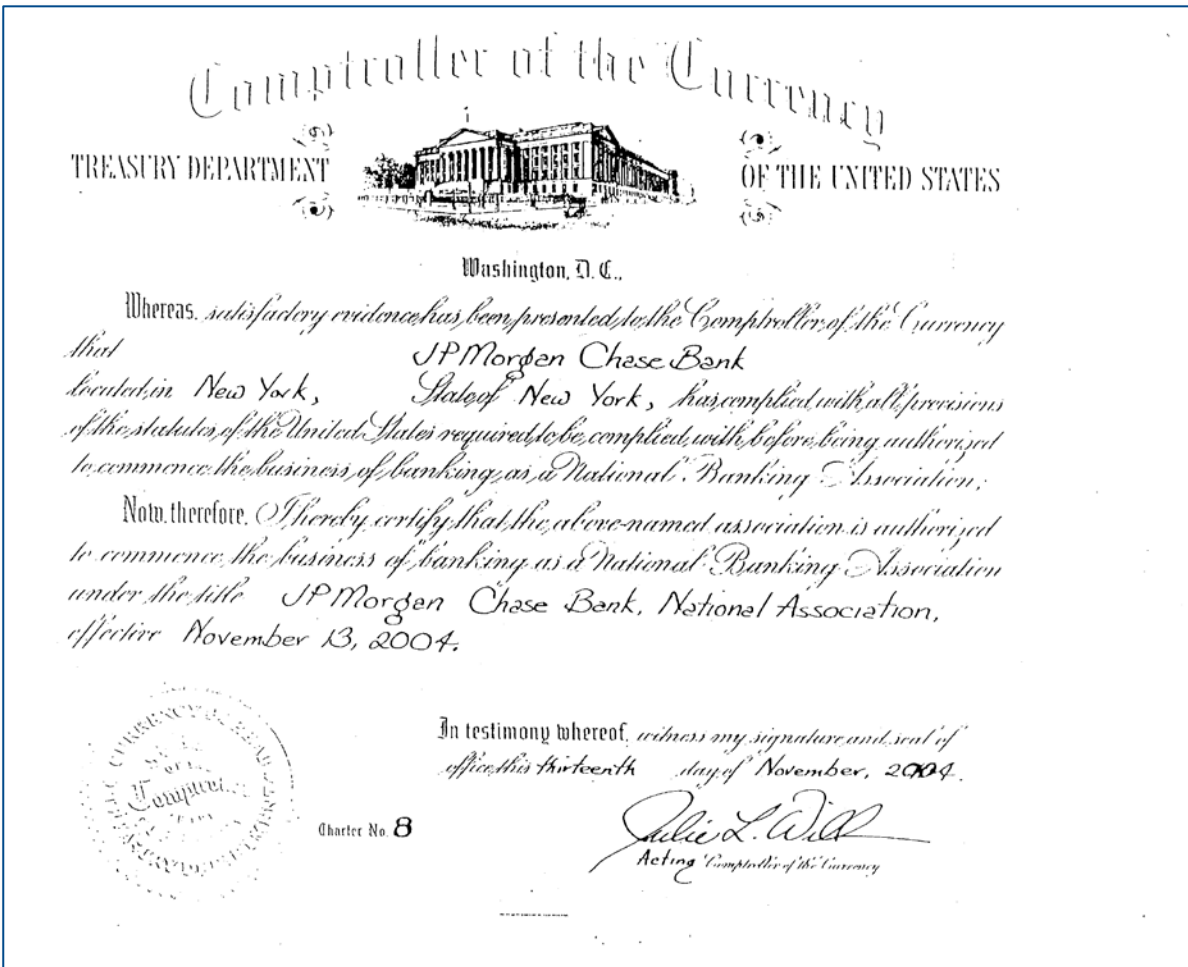 Comptroller of the Currency
TREASURY DEPARTMENT OF THE UNITED STATES
Washington, D. C.,
Whereas, satisfactory evidence has been presented to the Comptroller of the Currency
that JPMorgan Chase Bank
located in New York, State of New York, has complied with all provisions
of the statutes of the United States required to be complied with before being authorized
to commence the business of banking as a National Banking Association;
Now, therefore, I hereby certify that the above-named association is authorized
to commence the business of banking as a National Banking Association
under the title JPMorgan Chase Bank, National Association,
effective November 13, 2004.
In testimony whereof, witness my signature and seal of
office this thirteenth day of November, 2004.
CURRENCY BUREAU
OF THE
Charter No. 8
Julie L. Will
Acting Comptroller of the Currency